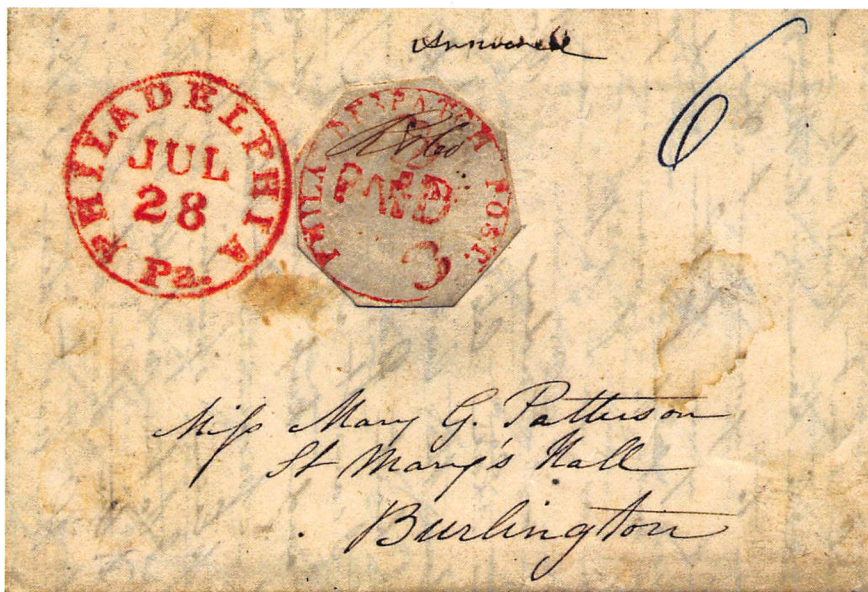 6
PHILADELPHIA
JUL
28
Pa.
PHILA DESPATCH POST.
PAID
3
Miss Mary G. Patterson
St Mary's Hall
Burlington